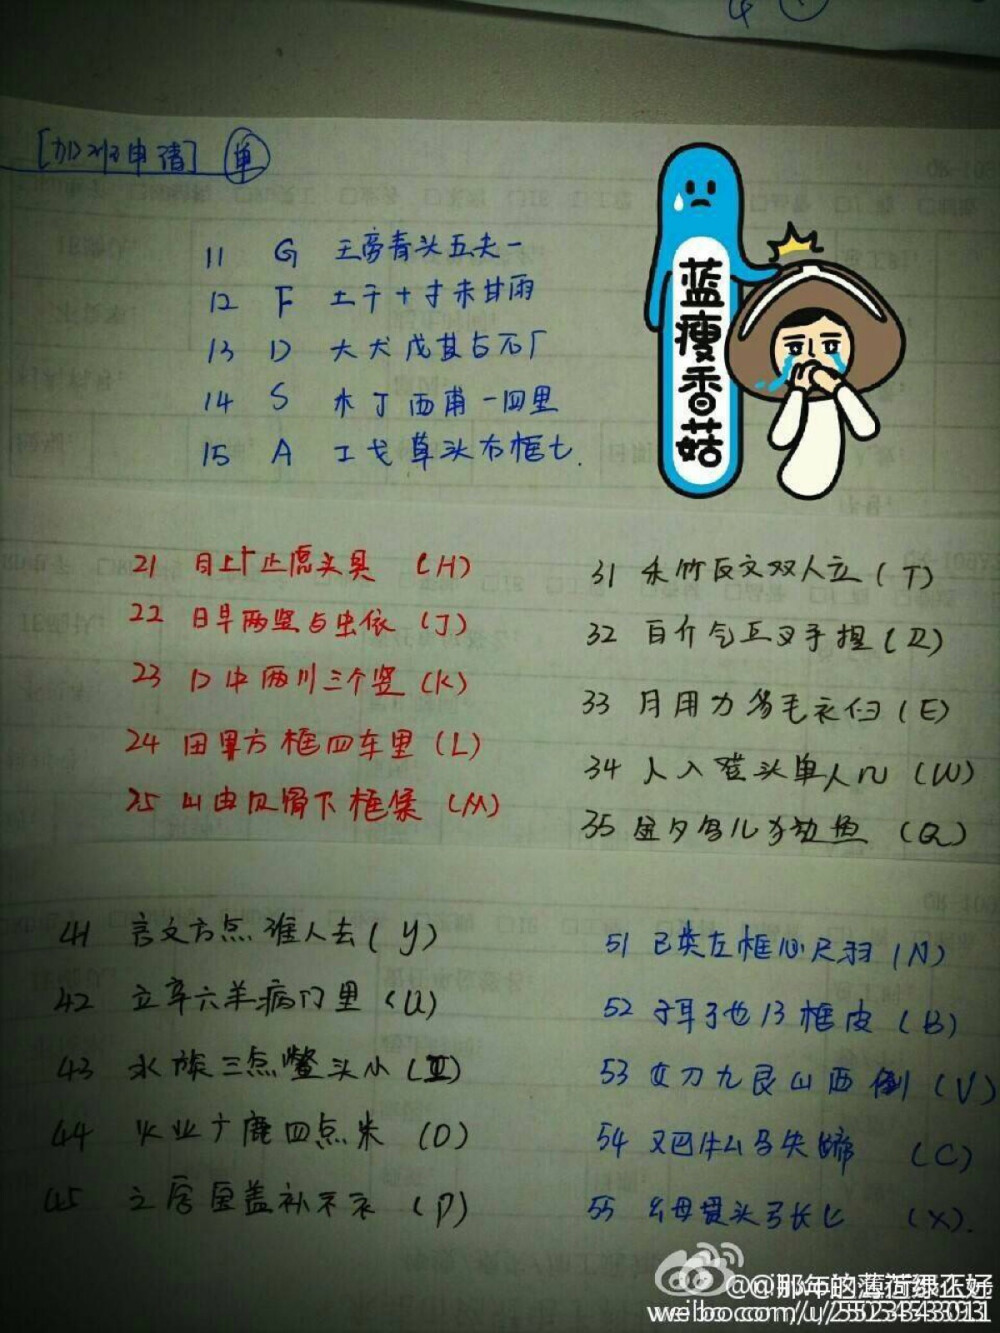 [加班申请] 单
11 G 王旁青头五夫一
12 F 土干十寸未甘雨
13 D 大犬戊其古石厂
14 S 木丁西甫一四里
15 A 工戈草头右框七.
蓝瘦香菇
21 目上卜止虎头具 (H)
22 日早两竖与虫依 (J)
23 口中两川三个竖 (K)
24 田甲方框四车里 (L)
25 山由贝骨下框集 (M)
31 禾竹反文双人立 (T)
32 白斤气丘叉手提
33 月用力多毛衣臼 (E)
34 人八登头单人几 (W)
35 金夕鸟儿犭边鱼 (Q)
41 言文方点谁人去 (Y)
42 立辛六羊病门里 (U)
43 水族三点鳖头小 (I)
44 火业广鹿四点米 (O)
45 之宝盖补不衣 (P)
51 已类左框心尺羽 (N)
52 子耳了也框皮 (B)
53 女刀九艮山西倒 (V)
54 又巴牛厶马失蹄 (C)
55 幺母贯头弓长匕 (X).
@那年的薄荷绿正好
weibo.com/u/